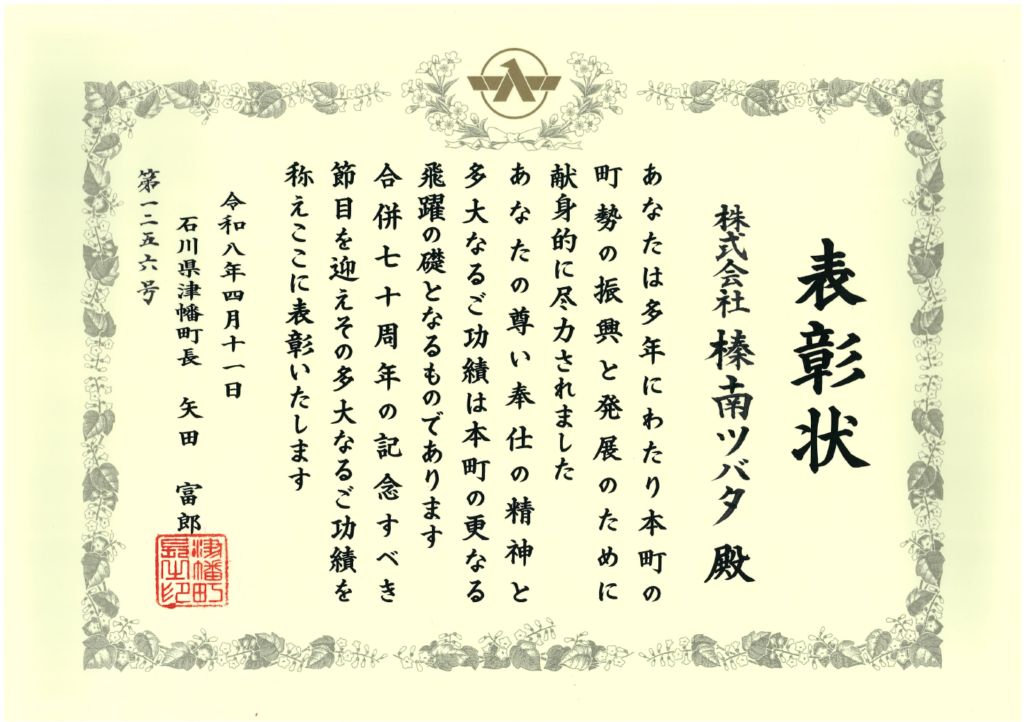 表彰状
株式会社 榛南ツバタ 殿
あなたは多年にわたり本町の
町勢の振興と発展のために
献身的に尽力されました
あなたの尊い奉仕の精神と
多大なるご功績は本町の更なる
飛躍の礎となるものであります
合併七十周年の記念すべき
節目を迎えその多大なるご功績を
称えここに表彰いたします
令和八年四月十一日
石川県津幡町長 矢田 富郎
津幡町長之印
第一二五六号